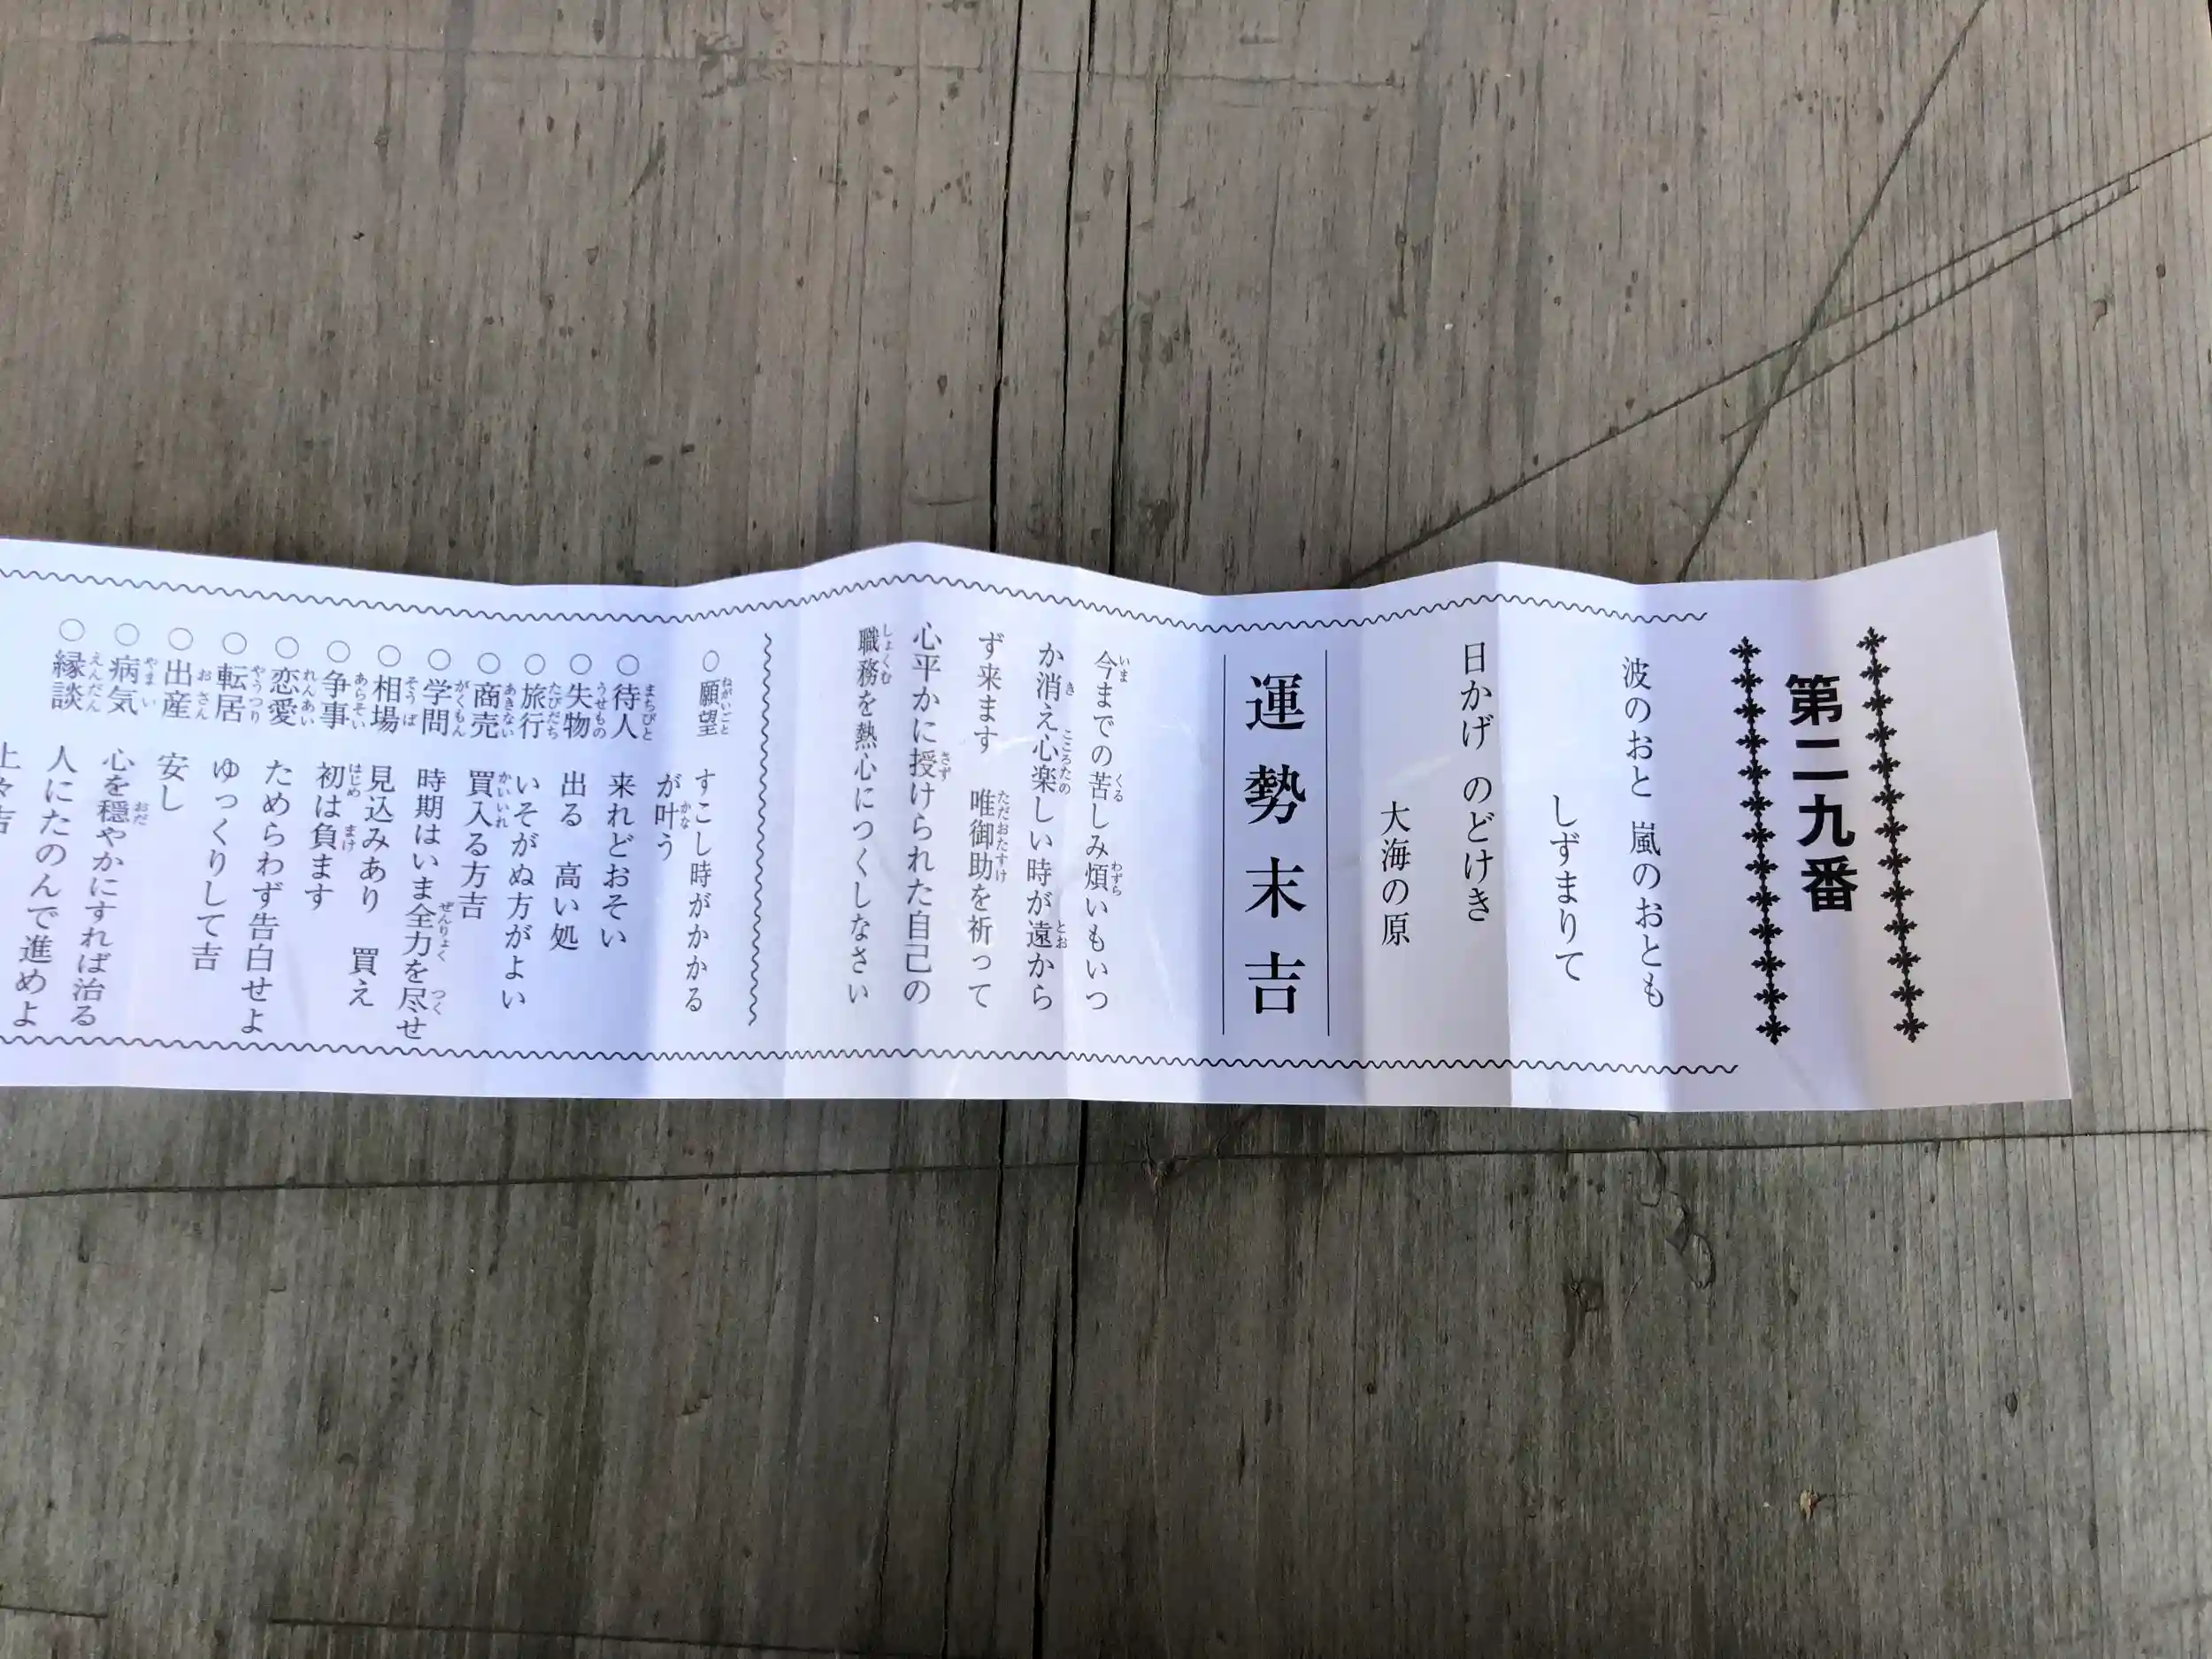 第二九番
波のおと 嵐のおとも
しずまりて
日かげ のどけき
大海の原
運勢 末吉
今までの苦しみ煩いもいつ
か消え心楽しい時が遠から
ず来ます 唯御助を祈って
心平かに授けられた自己の
職務を熱心につくしなさい
○願望 すこし時がかかる
が叶う
○待人 来れどおそい
○失物 出る 高い処
○旅行 いそがぬ方がよい
○商売 買入る方吉
○学問 時期はいま全力を尽せ
○相場 見込みあり 買え
○争事 初は負ます
○恋愛 ためらわず告白せよ
○転居 ゆっくりして吉
○出産 安し
○病気 心を穏やかにすれば治る
○縁談 人にたのんで進めよ
上々吉